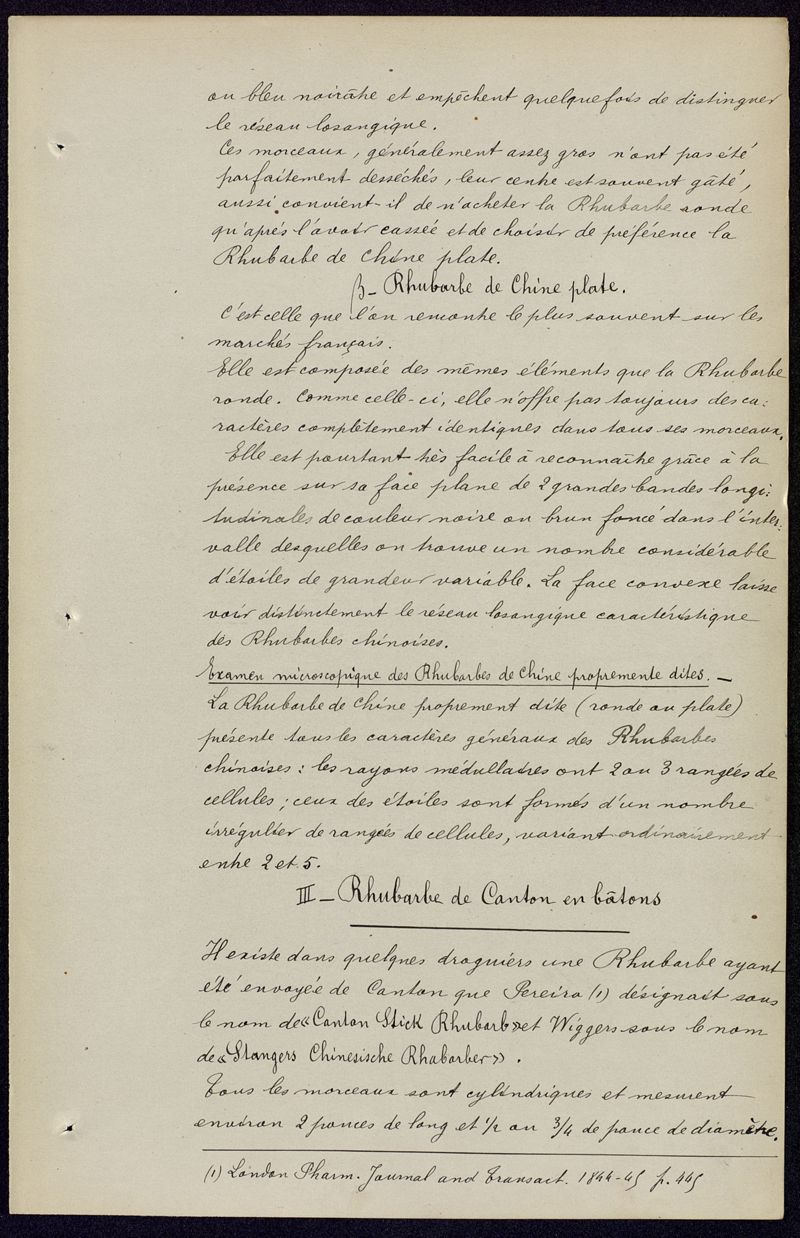 ou bleu noirâtre et empêchent quelquefois de distinguer
le réseau losangique.
Ces morceaux, généralement assez gros n'ont pas été
parfaitement desséchés, leur centre est souvent gâté,
aussi convient-il de n'acheter la Rhubarbe ronde
qu'après l'avoir cassée et de choisir de préférence la
Rhubarbe de Chine plate.
β - Rhubarbe de Chine plate.
C'est celle que l'on rencontre le plus souvent sur les
marchés français.
Elle est composée des mêmes éléments que la Rhubarbe
ronde. Comme celle-ci, elle n'offre pas toujours des ca:
ractères complètement identiques dans tous ses morceaux.
Elle est pourtant très facile à reconnaître grâce à la
présence sur sa face plane de 2 grandes bandes longi:
tudinales de couleur noire ou brun foncé dans l'inter:
valle desquelles on trouve un nombre considérable
d'étoiles de grandeur variable. La face convexe laisse
voir distinctement le réseau losangique caractéristique
des Rhubarbes chinoises.
Examen microscopique des Rhubarbes de Chine propremente dites. -
La Rhubarbe de Chine proprement dite (ronde ou plate)
présente tous les caractères généraux des Rhubarbes
chinoises : les rayons médullaires ont 2 ou 3 rangées de
cellules ; ceux des étoiles sont formés d'un nombre
irrégulier de rangées de cellules, variant ordinairement
entre 2 et 5.
III - Rhubarbe de Canton en bâtons
Il existe dans quelques droguiers une Rhubarbe ayant
été envoyée de Canton que Pereira (1) désignait sous
le nom de «Canton Stick Rhubarb» et Wiggers sous le nom
de «Stangers Chinesische Rhabarber».
Tous les morceaux sont cylindriques et mesurent
environ 2 pouces de long et 1/2 ou 3/4 de pouce de diamètre.
(1) London Pharm. Journal and Transact. 1844-45 p. 445